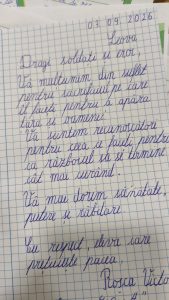 03.09.2026
Leova
Dragi soldați și eroi,
Vă mulțumim din suflet
pentru sacrificiul pe care
îl faceți pentru a apăra
țara și oamenii.
Vă suntem recunoscători
pentru ceea ce faceți pentru
ca războiul să se termine
cât mai curând.
Vă mai dorim sănătate,
putere și răbdare.
Cu respect, eleva care
prețuiește pacea.
Roșca Victo